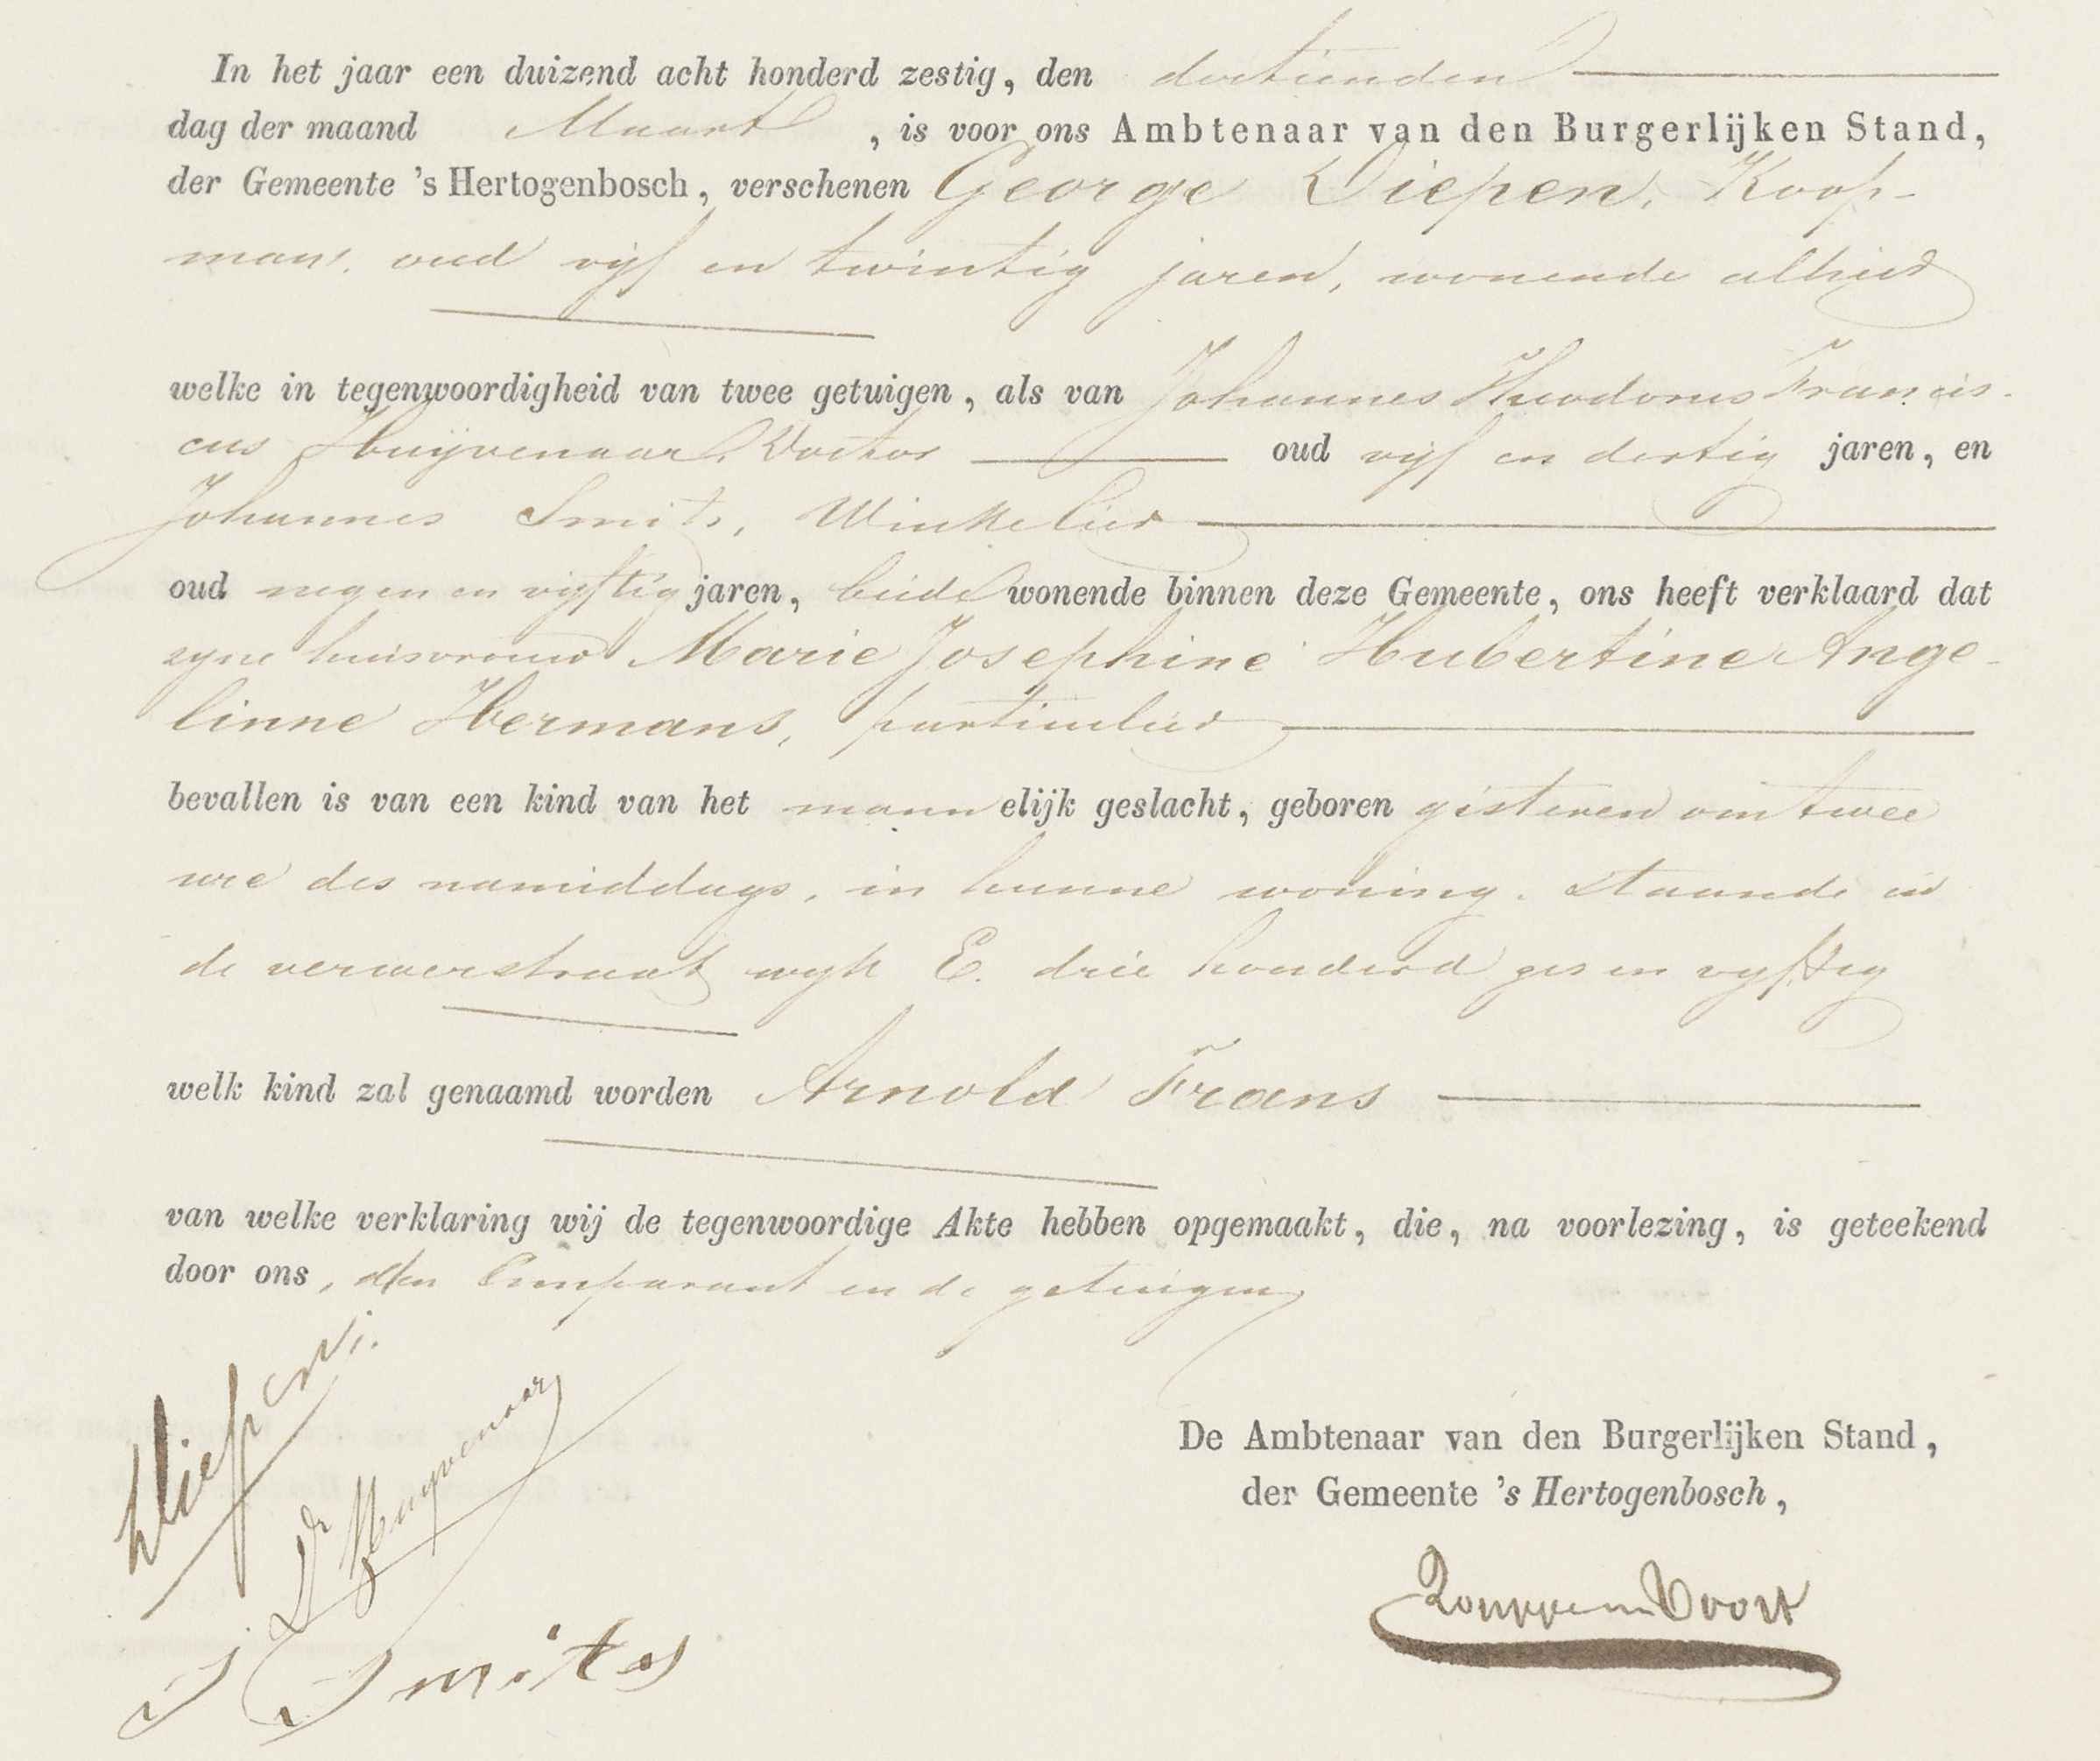 In het jaar een duizend acht honderd zestig, den dertienden
dag der maand Maart, is voor ons Ambtenaar van den Burgerlijken Stand,
der Gemeente 's Hertogenbosch, verschenen George Diepen, Koop-
man, oud vijf en twintig jaren, wonende alhier
welke in tegenwoordigheid van twee getuigen, als van Johannes Theodorus Francis-
cus Huijvenaar, Doctor oud vijf en dertig jaren, en
Johannes Smits, Winkelier
oud negen en vijftig jaren, beide wonende binnen deze Gemeente, ons heeft verklaard dat
zyne huisvrouw Marie Josephine Hubertine Ange-
linne Hermans, particulier
bevallen is van een kind van het mannelijk geslacht, geboren gisteren om twee
ure des namiddags, in hunne woning, staande in
de verwerstraat wyk E. drie honderd zes en vyftig
welk kind zal genaamd worden Arnold Frans
van welke verklaring wij de tegenwoordige Akte hebben opgemaakt, die, na voorlezing, is geteekend
door ons, den Comparant en de getuigen
Diepen
Dr Huyvenaar
J Smits
De Ambtenaar van den Burgerlijken Stand,
der Gemeente 's Hertogenbosch,